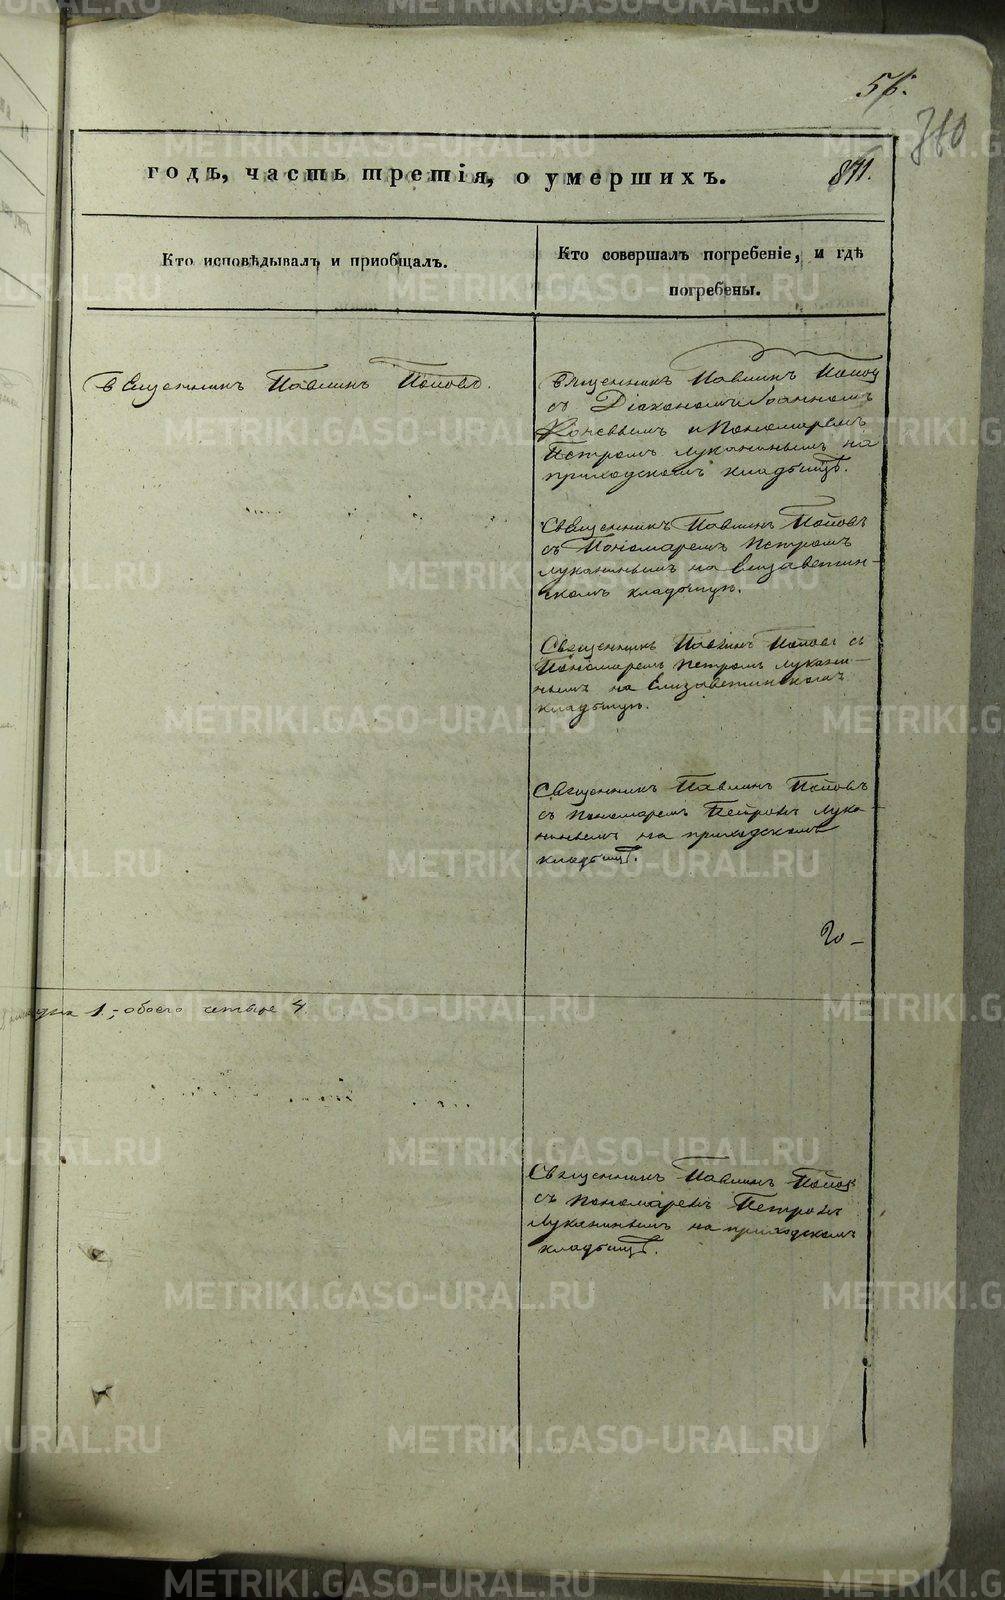 56.
380
годъ, часть третія, о умершихъ.
841.
Кто исповѣдывалъ и пріобщалъ.
Кто совершалъ погребеніе, и гдѣ
погребены.
Священникъ Павлинъ Поповъ.
Священникъ Павлинъ Поповъ
съ Діакономъ Іоанномъ
и Пономаремъ
Петромъ Луканинымъ на
приходскомъ кладбищѣ.
Священникъ Павлинъ Поповъ
съ Пономаремъ Петромъ
Луканинымъ на Елизаветин-
скомъ кладбищѣ.
Священникъ Павлинъ Поповъ съ
Пономаремъ Петромъ Лукани-
нымъ на Елизаветинскомъ
кладбищѣ.
Священникъ Павлинъ Поповъ
съ Пономаремъ Петромъ Лука-
нинымъ на приходскомъ
кладбищѣ.
1, обоего четыре 4
Священникъ Павлинъ Поповъ
съ Пономаремъ Петромъ
Луканинымъ на приходскомъ
кладбищѣ.
METRIKI.GASO-URAL.RU